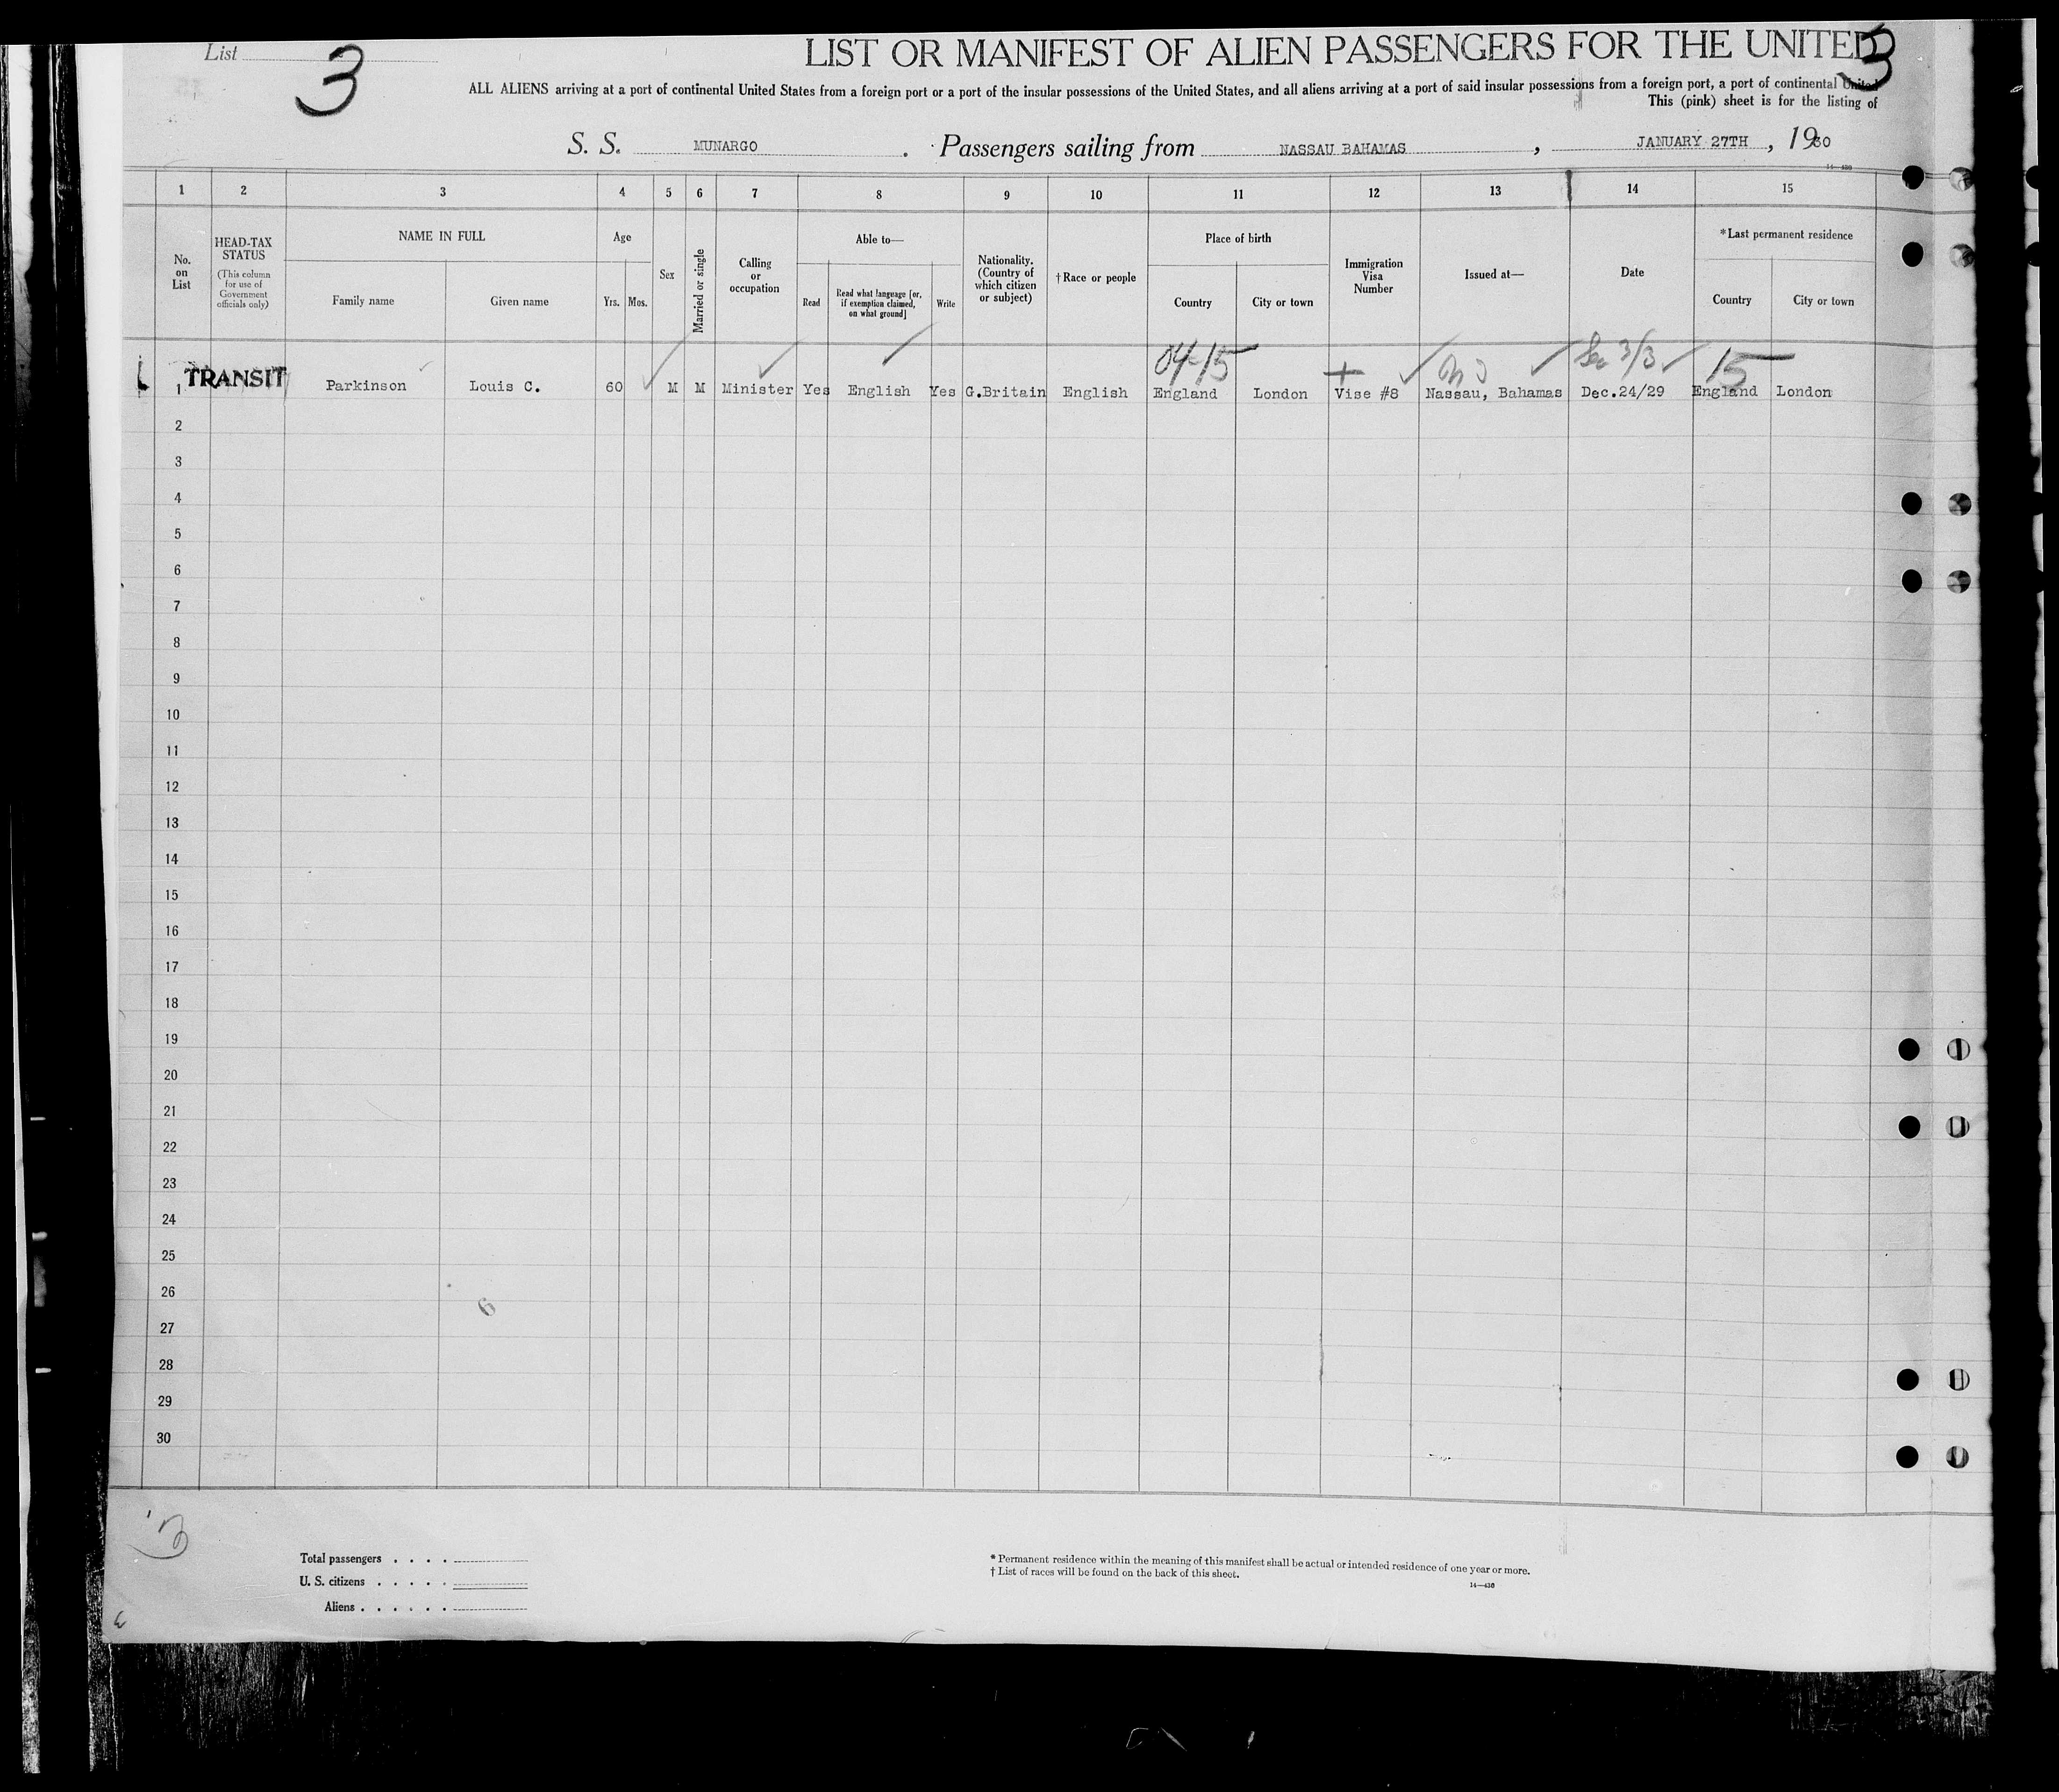 List 3
LIST OR MANIFEST OF ALIEN PASSENGERS FOR THE UNITED
3
ALL ALIENS arriving at a port of continental United States from a foreign port or a port of the insular possessions of the United States, and all aliens arriving at a port of said insular possessions from a foreign port, a port of continental United
This (pink) sheet is for the listing of
S. S. MUNARGO . Passengers sailing from NASSAU BAHAMAS , JANUARY 27TH , 1930
14—430
1 2 3 4 5 6 7 8 9 10 11 12 13 14 15
No. on List
HEAD-TAX STATUS
(This column for use of Government officials only)
NAME IN FULL
Family name
Given name
Age
Yrs.
Mos.
Sex
Married or single
Calling or occupation
Able to—
Read
Read what language [or, if exemption claimed, on what ground]
Write
Nationality. (Country of which citizen or subject)
† Race or people
Place of birth
Country
City or town
Immigration Visa Number
Issued at—
Date
* Last permanent residence
Country
City or town
04-15
3/3
15
1 TRANSIT Parkinson Louis C. 60 M M Minister Yes English Yes G.Britain English England London Vise #8 Nassau, Bahamas Dec.24/29 England London
2
3
4
5
6
7
8
9
10
11
12
13
14
15
16
17
18
19
20
21
22
23
24
25
26
27
28
29
30
6
3
Total passengers . . . .
U. S. citizens . . . . .
Aliens . . . . . .
* Permanent residence within the meaning of this manifest shall be actual or intended residence of one year or more.
† List of races will be found on the back of this sheet.
14—430